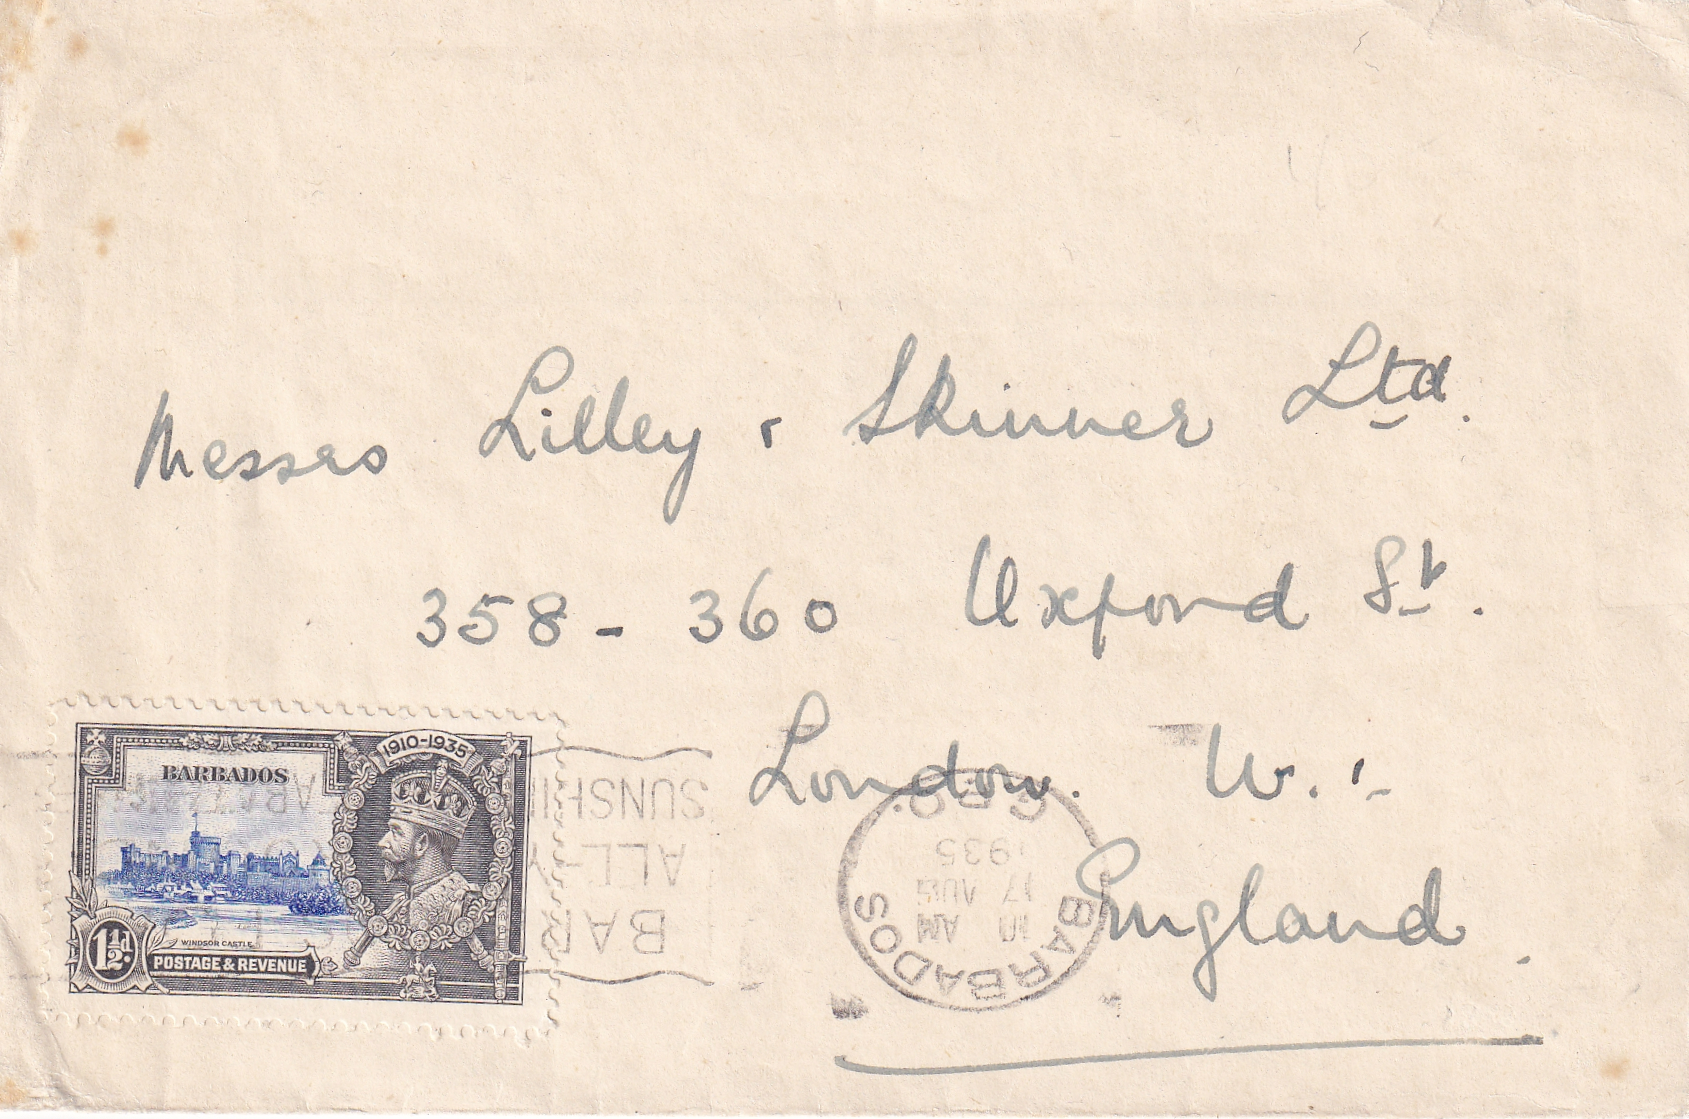 Messrs Lilley & Skinner Ltd.
358 - 360 Oxford St.
London. W.1
England.
1910-1935
BARBADOS
WINDSOR CASTLE
1½d.
POSTAGE & REVENUE
BAR
ALL
SUNSHI
BARBADOS
10 AM
17 AUG
1935
G.P.O.